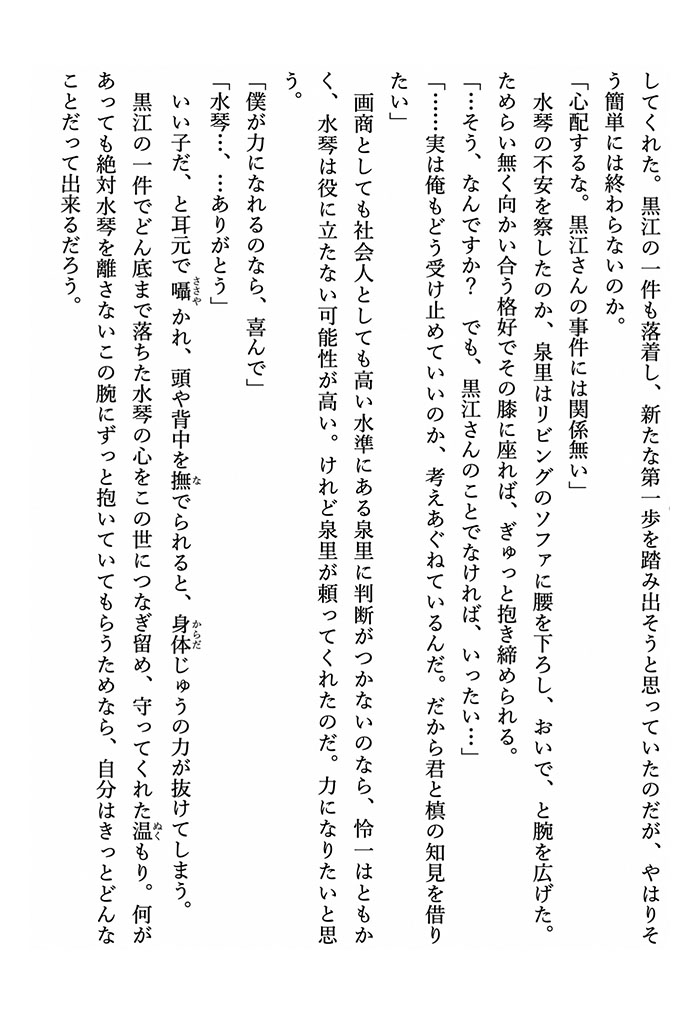 してくれた。黒江の一件も落着し、新たな第一歩を踏み出そうと思っていたのだが、やはりそ
う簡単には終わらないのか。
「心配するな。黒江さんの事件には関係無い」
水琴の不安を察したのか、泉里はリビングのソファに腰を下ろし、おいで、と腕を広げた。
ためらい無く向かい合う格好でその膝に座れば、ぎゅっと抱き締められる。
「…そう、なんですか？　でも、黒江さんのことでなければ、いったい…」
「……実は俺もどう受け止めていいのか、考えあぐねているんだ。だから君と槙の知見を借り
たい」
画商としても社会人としても高い水準にある泉里に判断がつかないのなら、怜一はともか
く、水琴は役に立たない可能性が高い。けれど泉里が頼ってくれたのだ。力になりたいと思
う。
「僕が力になれるのなら、喜んで」
「水琴…、…ありがとう」
いい子だ、と耳元で囁かれ、頭や背中を撫でられると、身体じゅうの力が抜けてしまう。
黒江の一件でどん底まで落ちた水琴の心をこの世につなぎ留め、守ってくれた温もり。何が
あっても絶対水琴を離さないこの腕にずっと抱いていてもらうためなら、自分はきっとどんな
ことだって出来るだろう。